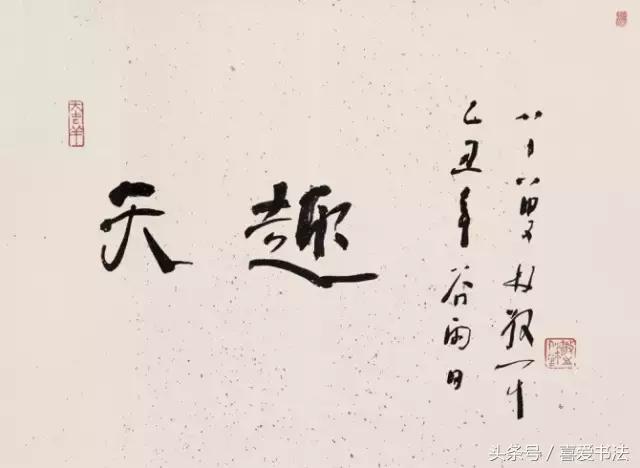 天趣
八十八叟林散耳
乙丑年谷雨日
大吉羊
头条号 / 喜爱书法